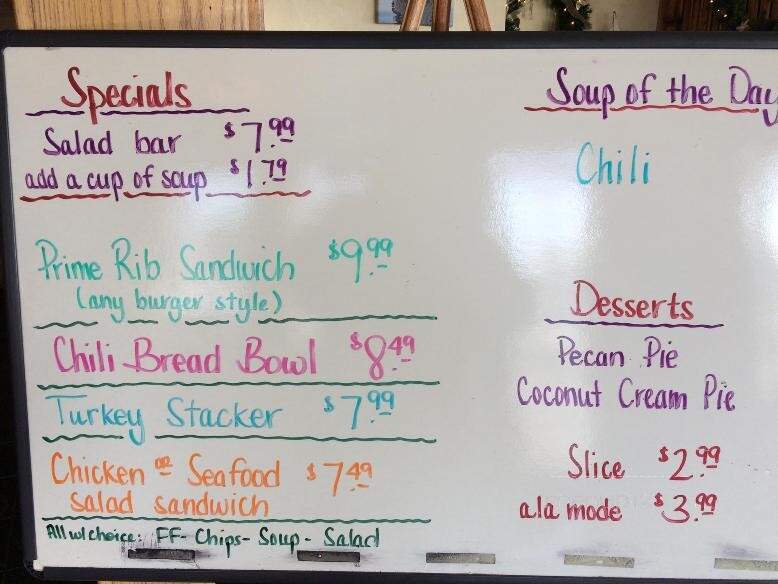 Specials
Salad bar $7.99
add a cup of soup $1.79
Prime Rib Sandwich $9.99
(any burger style)
Chili Bread Bowl $8.49
Turkey Stacker $7.99
Chicken or Seafood $7.49
salad sandwich
All w/ choice: FF- Chips- Soup- Salad
Soup of the Day
Chili
Desserts
Pecan Pie
Coconut Cream Pie
Slice $2.99
ala mode $3.99